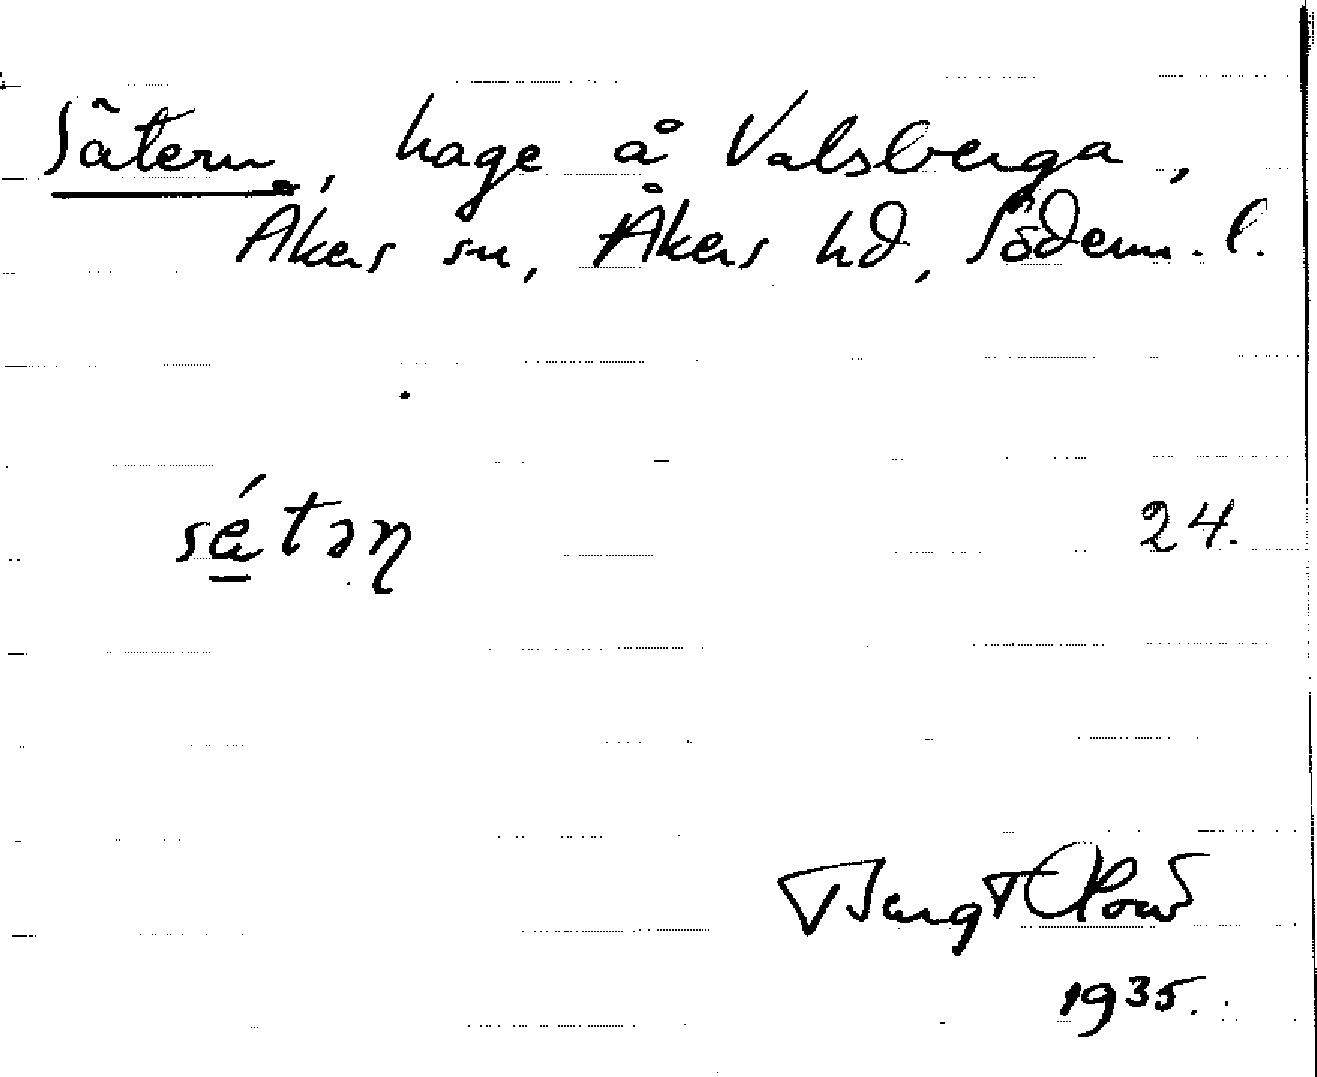 Sätern, hage å Valsberga,
Åkers sn, Åkers hd, Söderm. l.
sätəṇ 24.
Bengt
1935.